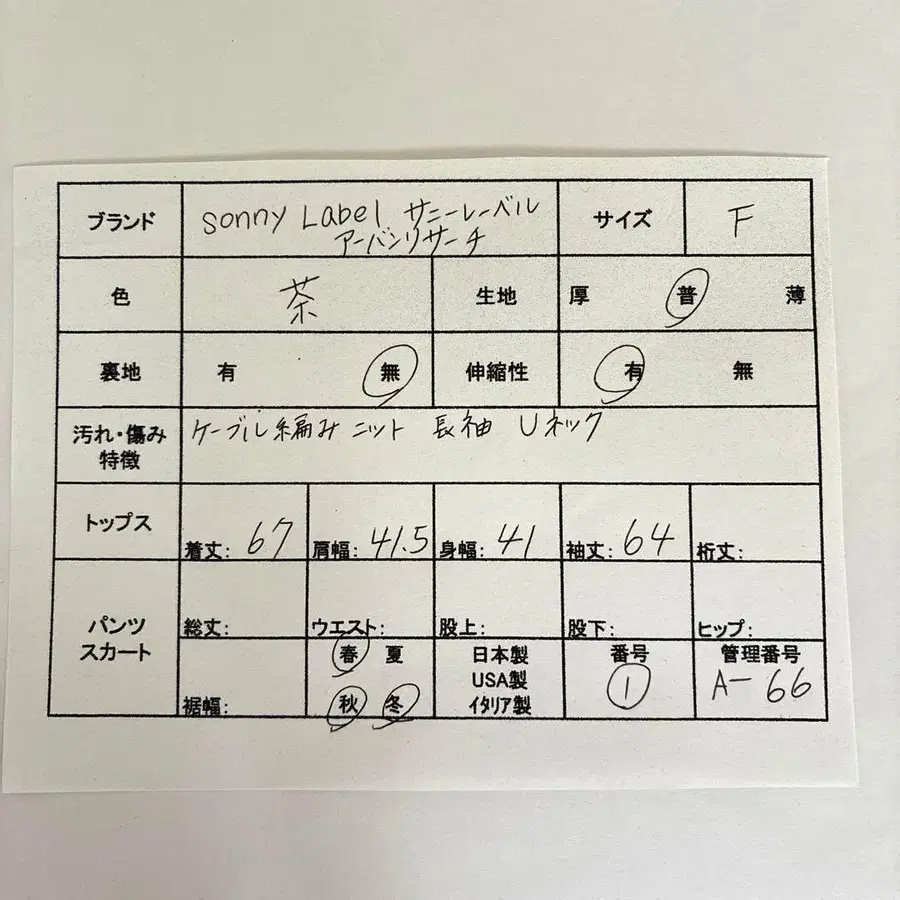 ブランド sonny Label サニーレーベル サイズ F
アーバンリサーチ
色 茶 生地 厚 普 薄
裏地 有 無 伸縮性 有 無
汚れ・傷み ケーブル編み ニット 長袖 Uネック
特徴
トップス 着丈: 67 肩幅: 41.5 身幅: 41 袖丈: 64 裄丈:
パンツ 総丈: ウエスト: 股上: 股下: ヒップ:
スカート 春 夏 日本製 番号 管理番号
USA製 ① A-66
裾幅: 秋 冬 イタリア製